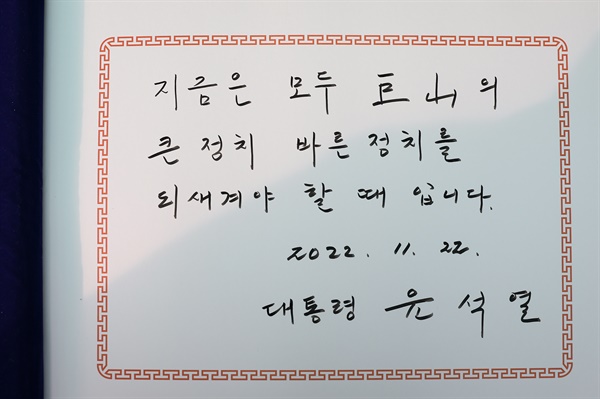 지금은 모두 巨山의
큰 정치 바른 정치를
되새겨야 할 때 입니다.
2022. 11. 22.
대통령 윤석열